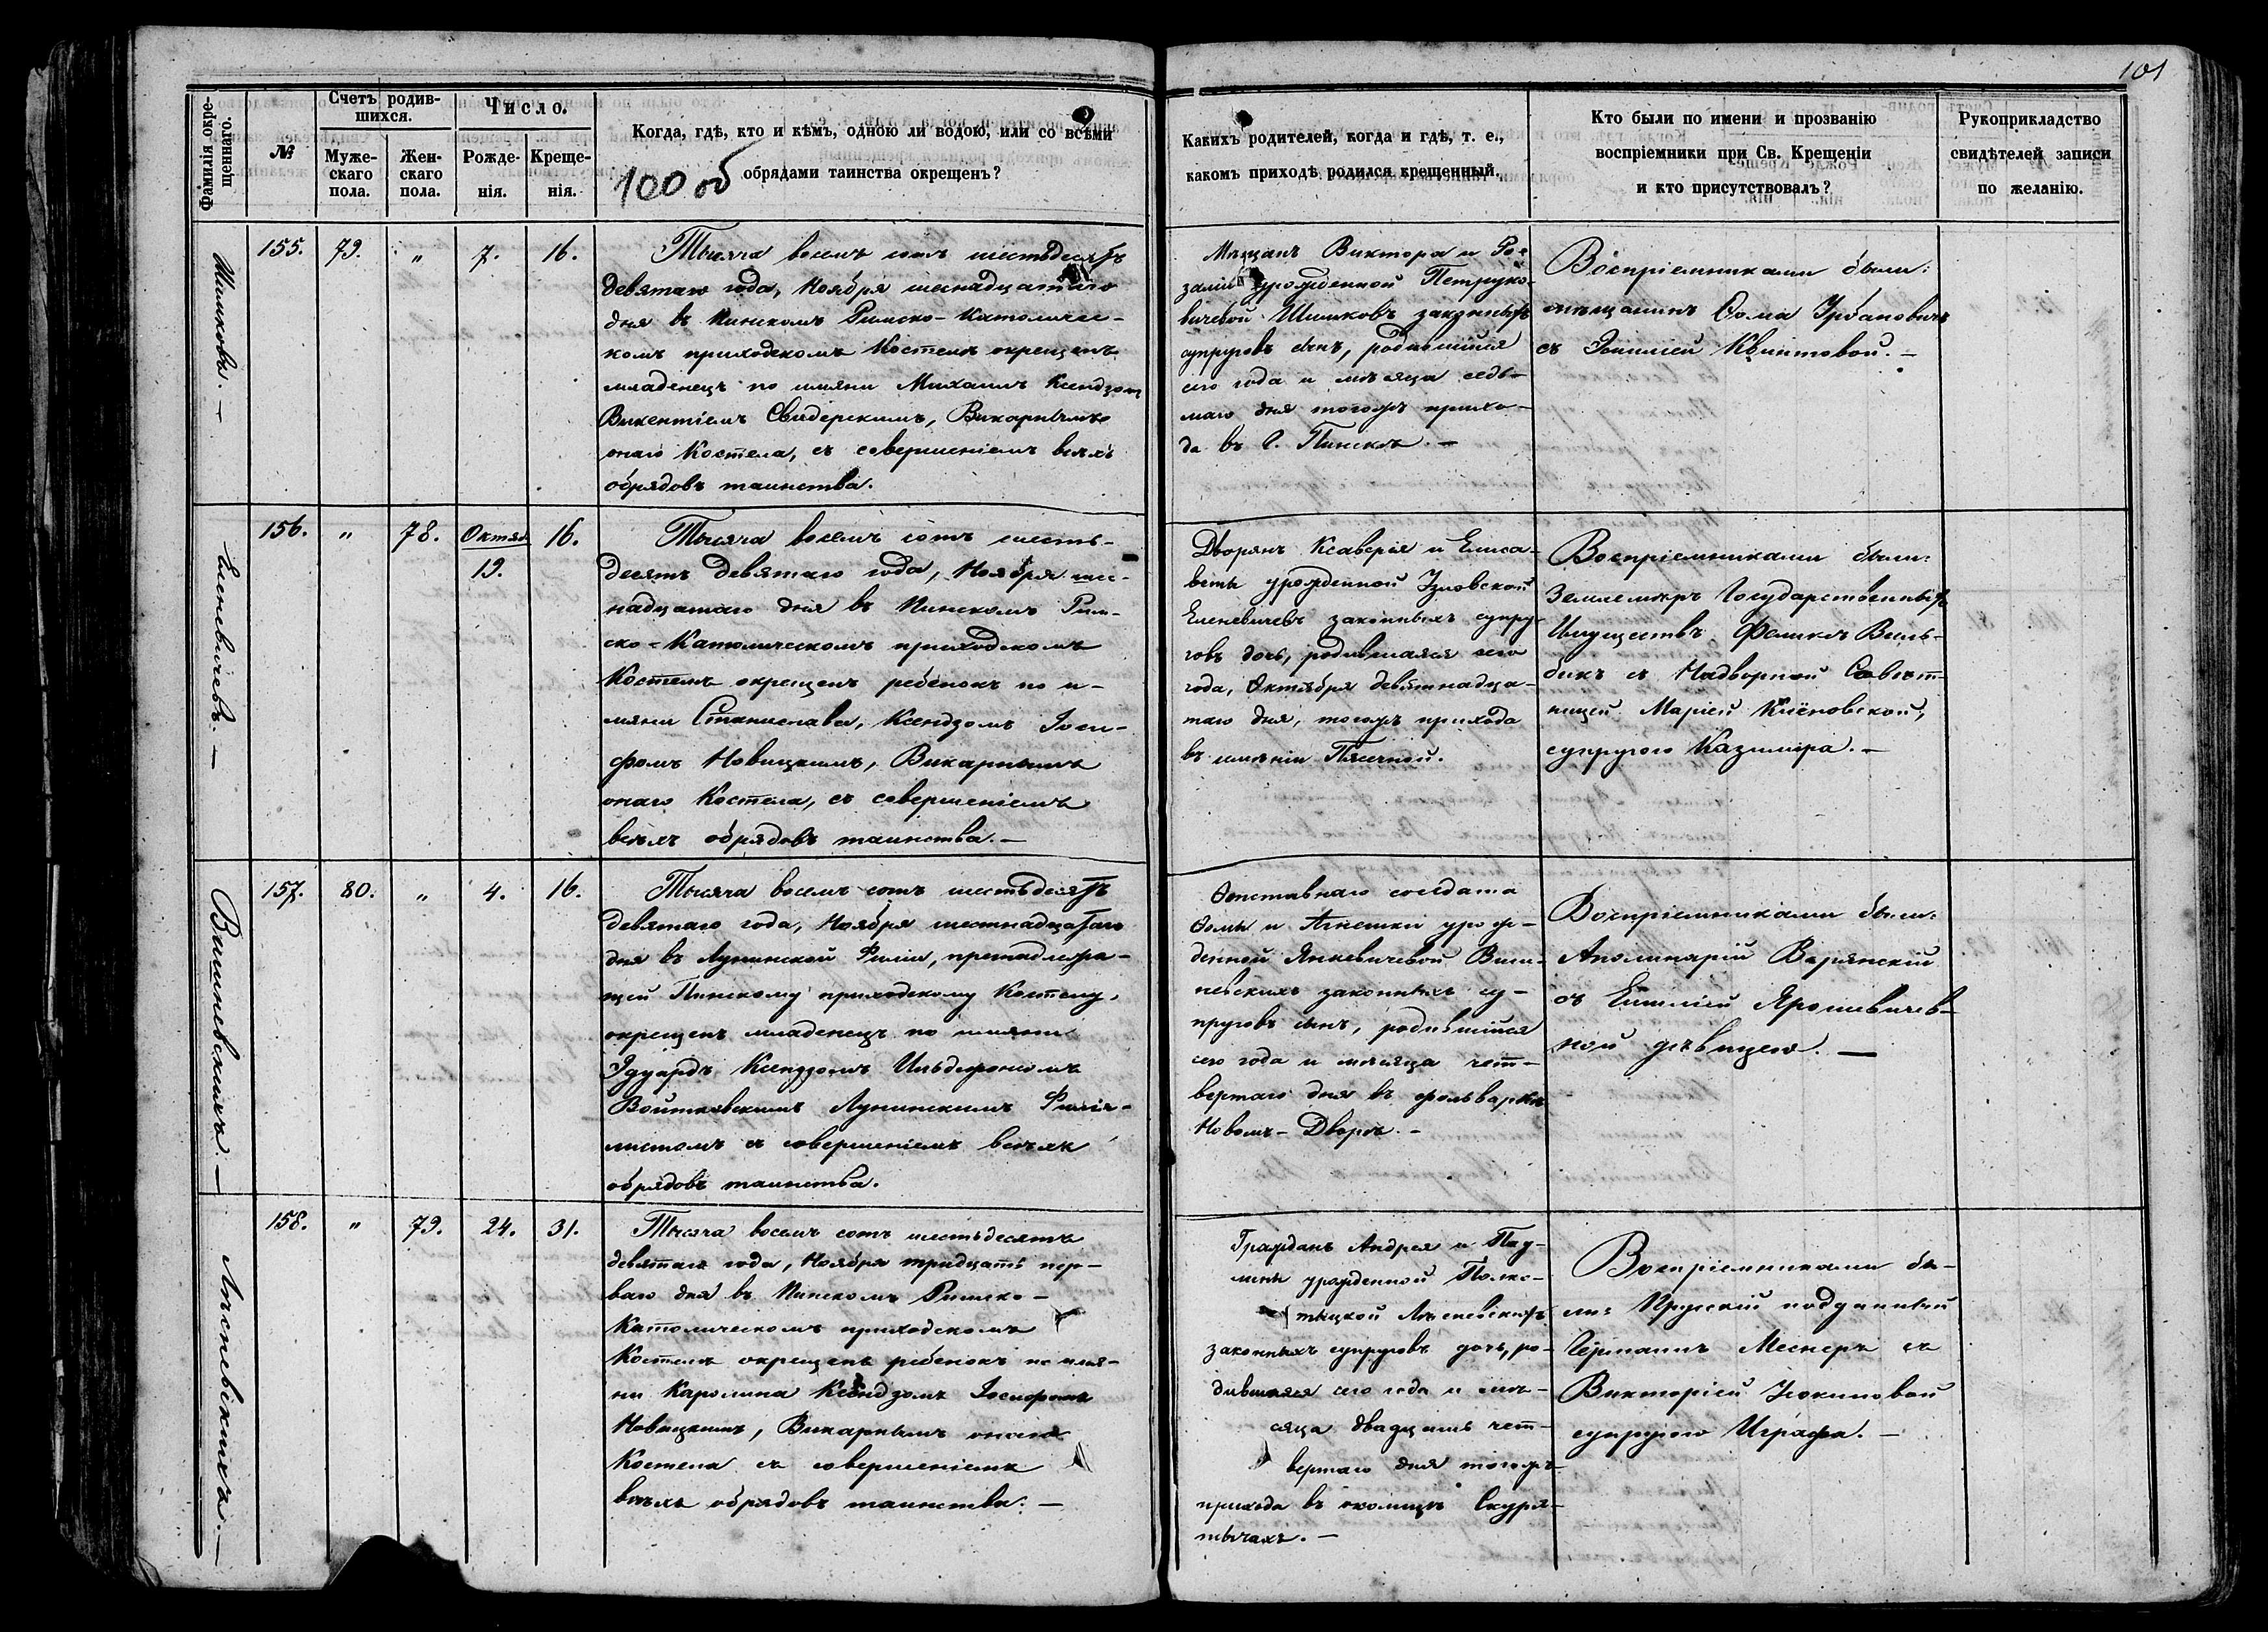 101
Фамилія окре-
щеннаго.
№
Счетъ родив-
шихся.
Муже-
скаго
пола.
Жен-
скаго
пола.
Число.
Рожде-
нія.
Креще-
нія.
Когда, гдѣ, кто и кѣмъ, одною ли водою, или со всѣми
обрядами таинства окрещенъ?
100 об
Какихъ родителей, когда и гдѣ, т. е.,
какомъ приходѣ родился крещенный.
Кто были по имени и прозванію
воспріемники при Св. Крещеніи
и кто присутствовалъ?
Рукоприкладство
свидѣтелей записи
по желанію.
Шишковъ. —
155.
79.
"
7.
16.
Тысяча восемь сотъ шестьдесятъ
девятаго года, Ноября шеснадцатаго
дня въ Пинскомъ Римско-Католичес-
комъ приходскомъ Костелѣ окрещенъ
младенецъ по имяни Михаилъ Ксендзомъ
Викентіемъ Свидерскимъ, Викарнымъ
онаго Костела, съ совершеніемъ всѣхъ
обрядовъ таинства.
Мѣщанъ Виктора и Ро-
заліи урожденной Петруко-
вичевой Шишковъ законныхъ
супруговъ сынъ, родившійся
сего года и мѣсяца седь-
маго дня тогожъ прихо-
да въ Г. Пинскѣ. —
Воспріемниками были:
мѣщанинъ Ѳома Урбановичъ
съ Эмиліей Квинтовой. —
Еленевичевъ. —
156.
"
78.
Октяб.
19.
16.
Тысяча восемь сотъ шесть-
десятъ девятаго года, Ноября шес-
надцатаго дня въ Пинскомъ Рим-
ско-Католическомъ приходскомъ
Костелѣ окрещенъ ребенокъ по и-
мяни Станислава, Ксендзомъ Іоси-
фомъ Новицкимъ, Викарнымъ
онаго Костела, съ совершеніемъ
всѣхъ обрядовъ таинства. —
Дворянъ Ксаверія и Елиса-
веты урожденной
Еленевичевъ законныхъ супру-
говъ дочь, родившаяся сего
года, Октября девятнадца-
таго дня, тогожъ прихода
въ имѣніи Пясечной.
Воспріемниками были:
Землемѣръ Государственныхъ
Имуществъ Феликсъ Виль-
бикъ съ Надворной Совѣт-
ницей Маріей Кліоновской,
супругою Казимира. —
Вишневскихъ. —
157.
80.
"
4.
16.
Тысяча восемь сотъ шестьдесятъ
девятаго года, Ноября шестнадцатаго
дня въ Лунинской Филіи, принадлежа-
щей Пинскому приходскому Костелу,
окрещенъ младенецъ по имяни
Эдуардъ Ксендзомъ Ильдефонсомъ
Войтковскимъ Лунинскимъ Филія-
листомъ съ совершеніемъ всѣхъ
обрядовъ таинства.
Отставнаго солдата
Ѳомы и Агнешки урож-
денной Янкевичевой Виш-
невскихъ законныхъ су-
пруговъ сынъ, родившійся
сего года и мѣсяца чет-
вертаго дня въ фольваркѣ
Новомъ-Дворѣ. —
Воспріемниками были:
Аполинарій Варянскій
съ Емиліей Ярошевичев-
ной дѣвицею. —
Лясневскихъ. —
158.
"
79.
24.
31.
Тысяча восемь сотъ шестьдесятъ
девятаго года, Ноября тридцать пер-
ваго дня въ Пинскомъ Римско-
Католическомъ приходскомъ
Костелѣ окрещенъ ребенокъ по имя-
ни Каролина Ксендзомъ Іосифомъ
Новицкимъ, Викарнымъ онаго
Костела съ совершеніемъ
всѣхъ обрядовъ таинства. —
Гражданъ Андрея и Пау-
лины урожденной Полко-
тыцкой Лясневскихъ
законныхъ супруговъ дочь, ро-
дившаяся сего года и мѣ-
сяца двадцать чет-
вертаго дня тогожъ
прихода въ околицѣ Скуря-
тычахъ. —
Воспріемниками бы-
ли: Прусскій подданный
Германъ Меснеръ съ
Викторіей
супругою —